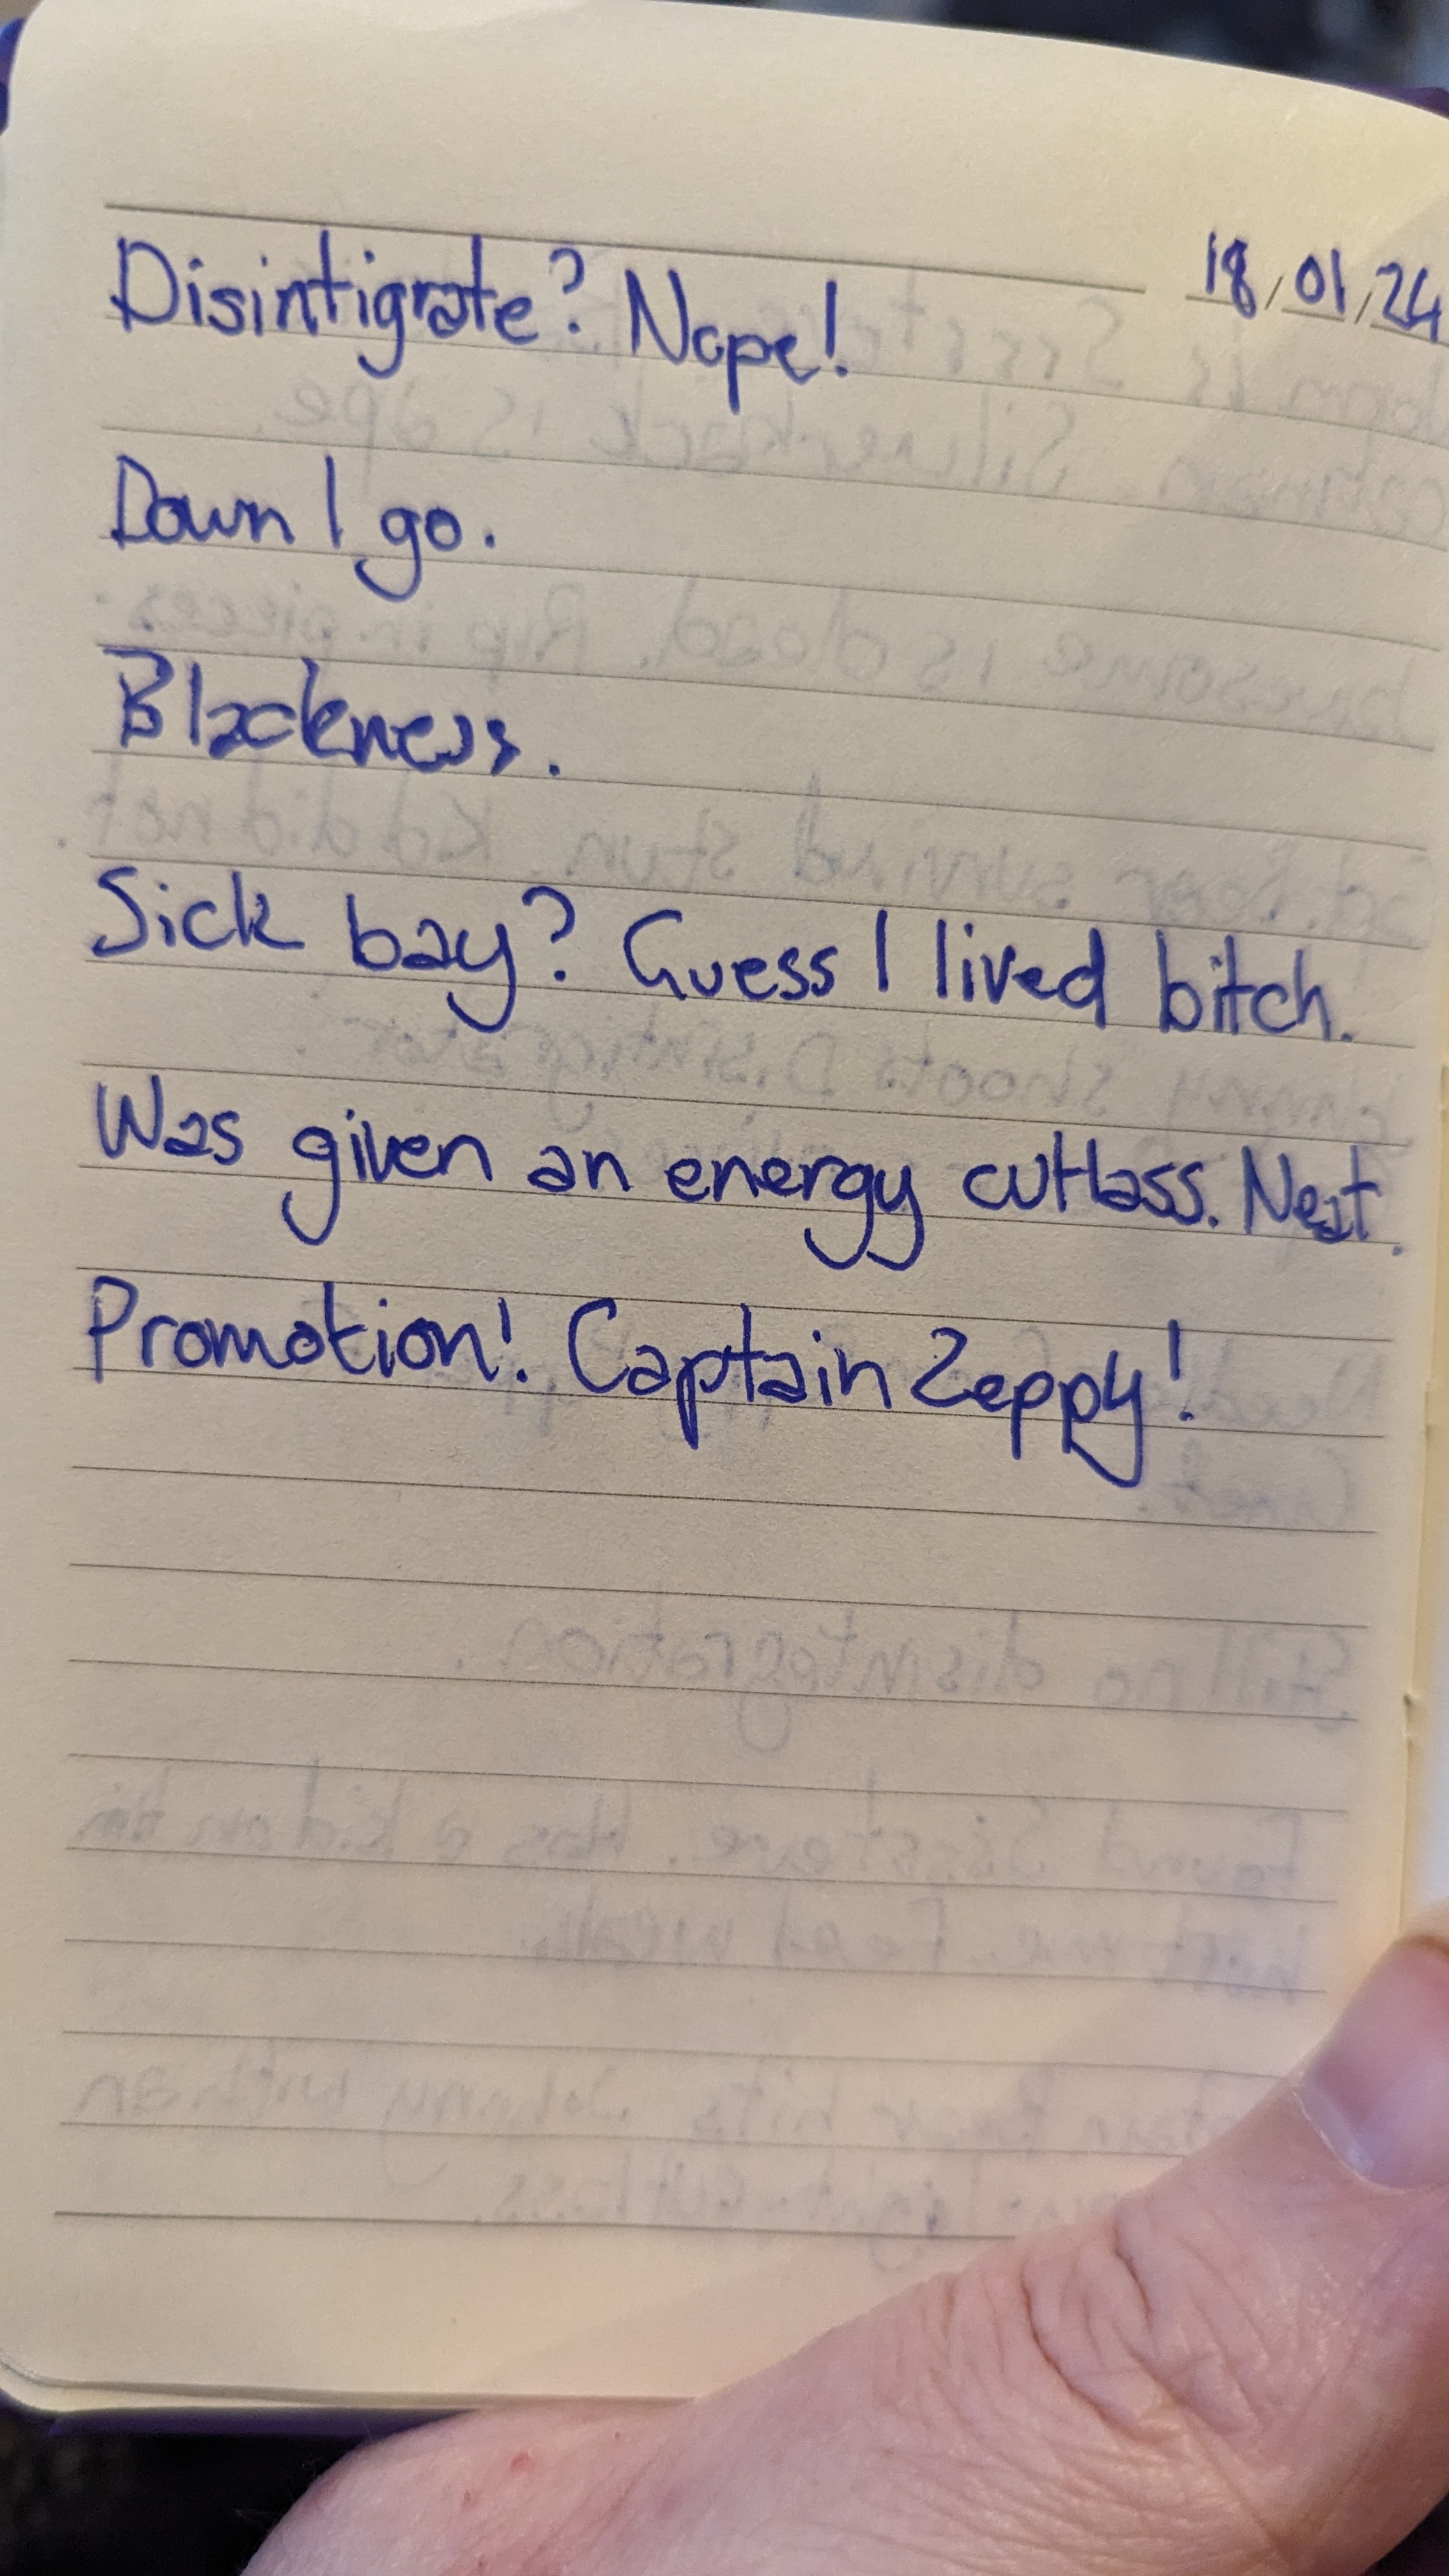 18/01/24
Disintigrate? Nope!
Down I go.
Blackness.
Sick bay? Guess I lived bitch.
Was given an energy cutlass. Neat.
Promotion! Captain Zeppy!